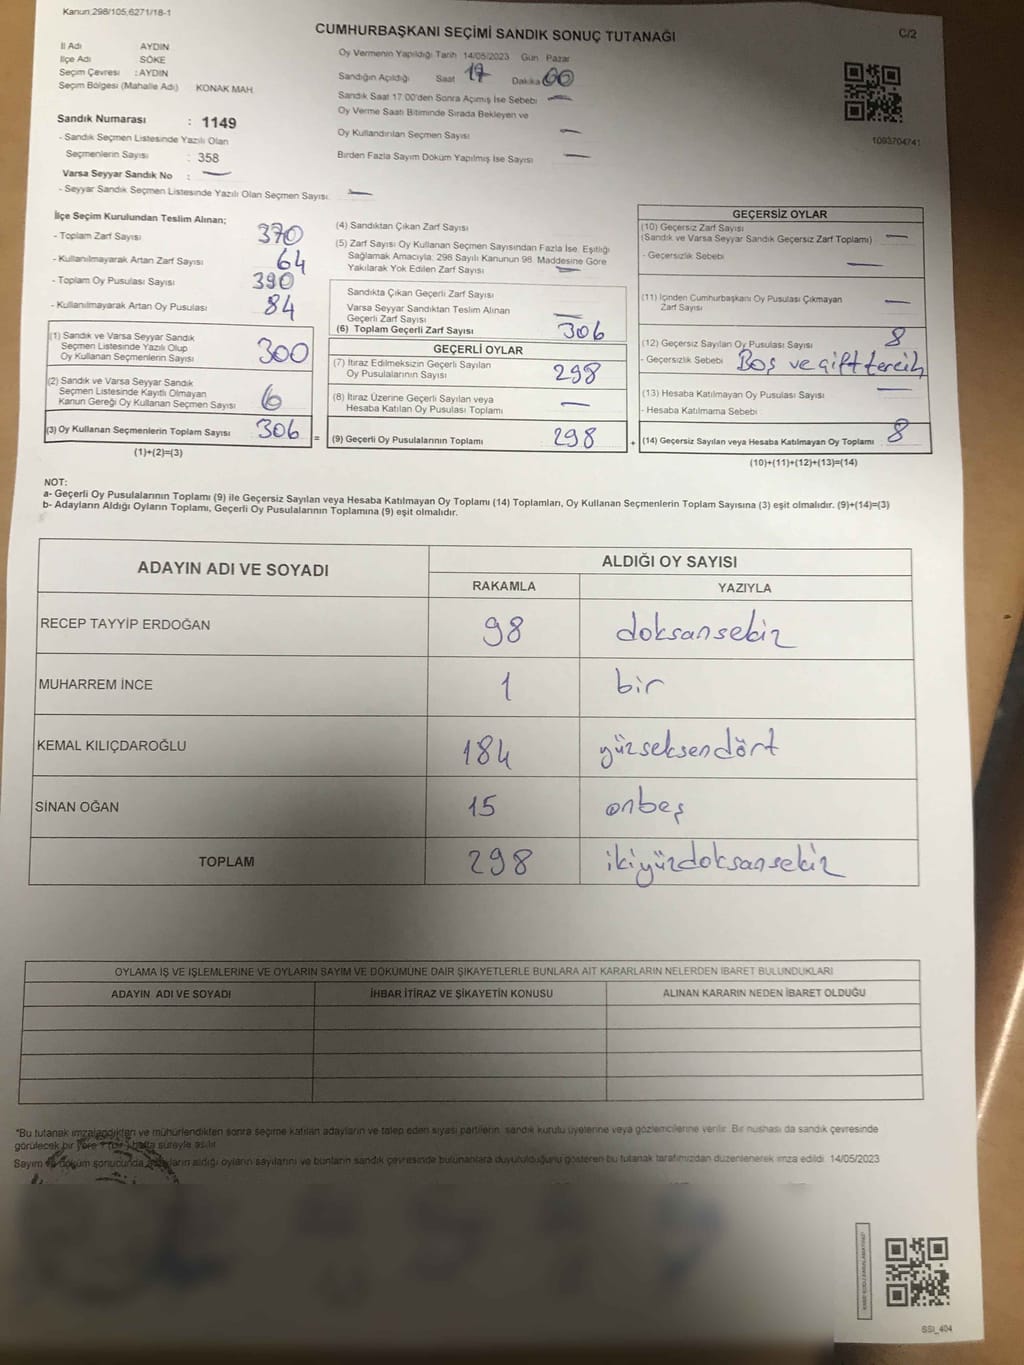 Kanun:298/105,6271/18-1
CUMHURBAŞKANI SEÇİMİ SANDIK SONUÇ TUTANAĞI
C/2
İl Adı AYDIN
İlçe Adı SÖKE
Seçim Çevresi : AYDIN
Seçim Bölgesi (Mahalle Adı) KONAK MAH.
Oy Vermenin Yapıldığı Tarih 14/05/2023 Gün Pazar
Sandığın Açıldığı Saat 17 Dakika 00
Sandık Saat 17:00'den Sonra Açımış İse Sebebi —
Oy Verme Saati Bitiminde Sırada Bekleyen ve
Oy Kullandırılan Seçmen Sayısı —
Birden Fazla Sayım Döküm Yapılmış İse Sayısı —
1093704741
Sandık Numarası : 1149
- Sandık Seçmen Listesinde Yazılı Olan
Seçmenlerin Sayısı : 358
Varsa Seyyar Sandık No : —
- Seyyar Sandık Seçmen Listesinde Yazılı Olan Seçmen Sayısı: —
İlçe Seçim Kurulundan Teslim Alınan;
- Toplam Zarf Sayısı 370
- Kullanılmayarak Artan Zarf Sayısı 64
- Toplam Oy Pusulası Sayısı 390
- Kullanılmayarak Artan Oy Pusulası 84
(1) Sandık ve Varsa Seyyar Sandık
Seçmen Listesinde Yazılı Olup
Oy Kullanan Seçmenlerin Sayısı 300
(2) Sandık ve Varsa Seyyar Sandık
Seçmen Listesinde Kayıtlı Olmayan
Kanun Gereği Oy Kullanan Seçmen Sayısı 6
(3) Oy Kullanan Seçmenlerin Toplam Sayısı 306 =
(1)+(2)=(3)
(4) Sandıktan Çıkan Zarf Sayısı
(5) Zarf Sayısı Oy Kullanan Seçmen Sayısından Fazla İse, Eşitliği
Sağlamak Amacıyla, 298 Sayılı Kanunun 98. Maddesine Göre
Yakılarak Yok Edilen Zarf Sayısı —
Sandıkta Çıkan Geçerli Zarf Sayısı
Varsa Seyyar Sandıktan Teslim Alınan
Geçerli Zarf Sayısı —
(6) Toplam Geçerli Zarf Sayısı 306
GEÇERLİ OYLAR
(7) İtiraz Edilmeksizin Geçerli Sayılan
Oy Pusulalarının Sayısı 298
(8) İtiraz Üzerine Geçerli Sayılan veya
Hesaba Katılan Oy Pusulası Toplamı —
(9) Geçerli Oy Pusulalarının Toplamı 298 +
GEÇERSİZ OYLAR
(10) Geçersiz Zarf Sayısı
(Sandık ve Varsa Seyyar Sandık Geçersiz Zarf Toplamı) —
- Geçersizlik Sebebi —
(11) İçinden Cumhurbaşkanı Oy Pusulası Çıkmayan
Zarf Sayısı —
(12) Geçersiz Sayılan Oy Pusulası Sayısı 8
- Geçersizlik Sebebi Boş ve çift tercih
(13) Hesaba Katılmayan Oy Pusulası Sayısı —
- Hesaba Katılmama Sebebi
(14) Geçersiz Sayılan veya Hesaba Katılmayan Oy Toplamı 8
(10)+(11)+(12)+(13)=(14)
NOT:
a- Geçerli Oy Pusulalarının Toplamı (9) ile Geçersiz Sayılan veya Hesaba Katılmayan Oy Toplamı (14) Toplamları, Oy Kullanan Seçmenlerin Toplam Sayısına (3) eşit olmalıdır. (9)+(14)=(3)
b- Adayların Aldığı Oyların Toplamı, Geçerli Oy Pusulalarının Toplamına (9) eşit olmalıdır.
ADAYIN ADI VE SOYADI
ALDIĞI OY SAYISI
RAKAMLA YAZIYLA
RECEP TAYYİP ERDOĞAN 98 doksansekiz
MUHARREM İNCE 1 bir
KEMAL KILIÇDAROĞLU 184 yüzseksendört
SİNAN OĞAN 15 onbeş
TOPLAM 298 ikiyüzdoksansekiz
OYLAMA İŞ VE İŞLEMLERİNE VE OYLARIN SAYIM VE DÖKÜMÜNE DAİR ŞİKAYETLERLE BUNLARA AİT KARARLARIN NELERDEN İBARET BULUNDUKLARI
ADAYIN ADI VE SOYADI İHBAR İTİRAZ VE ŞİKAYETİN KONUSU ALINAN KARARIN NEDEN İBARET OLDUĞU
*Bu tutanak imzalandıktan ve mühürlendikten sonra seçime katılan adayların ve talep eden siyasi partilerin, sandık kurulu üyelerine veya gözlemcilerine verilir. Bir nüshası da sandık çevresinde
görülecek bir yere 1 (bir) hafta süreyle asılır.
Sayım ve döküm sonucunda adayların aldığı oyların sayılarını ve bunların sandık çevresinde bulunanlara duyurulduğunu gösteren bu tutanak tarafımızdan düzenlenerek imza edildi. 14/05/2023
SSI_404